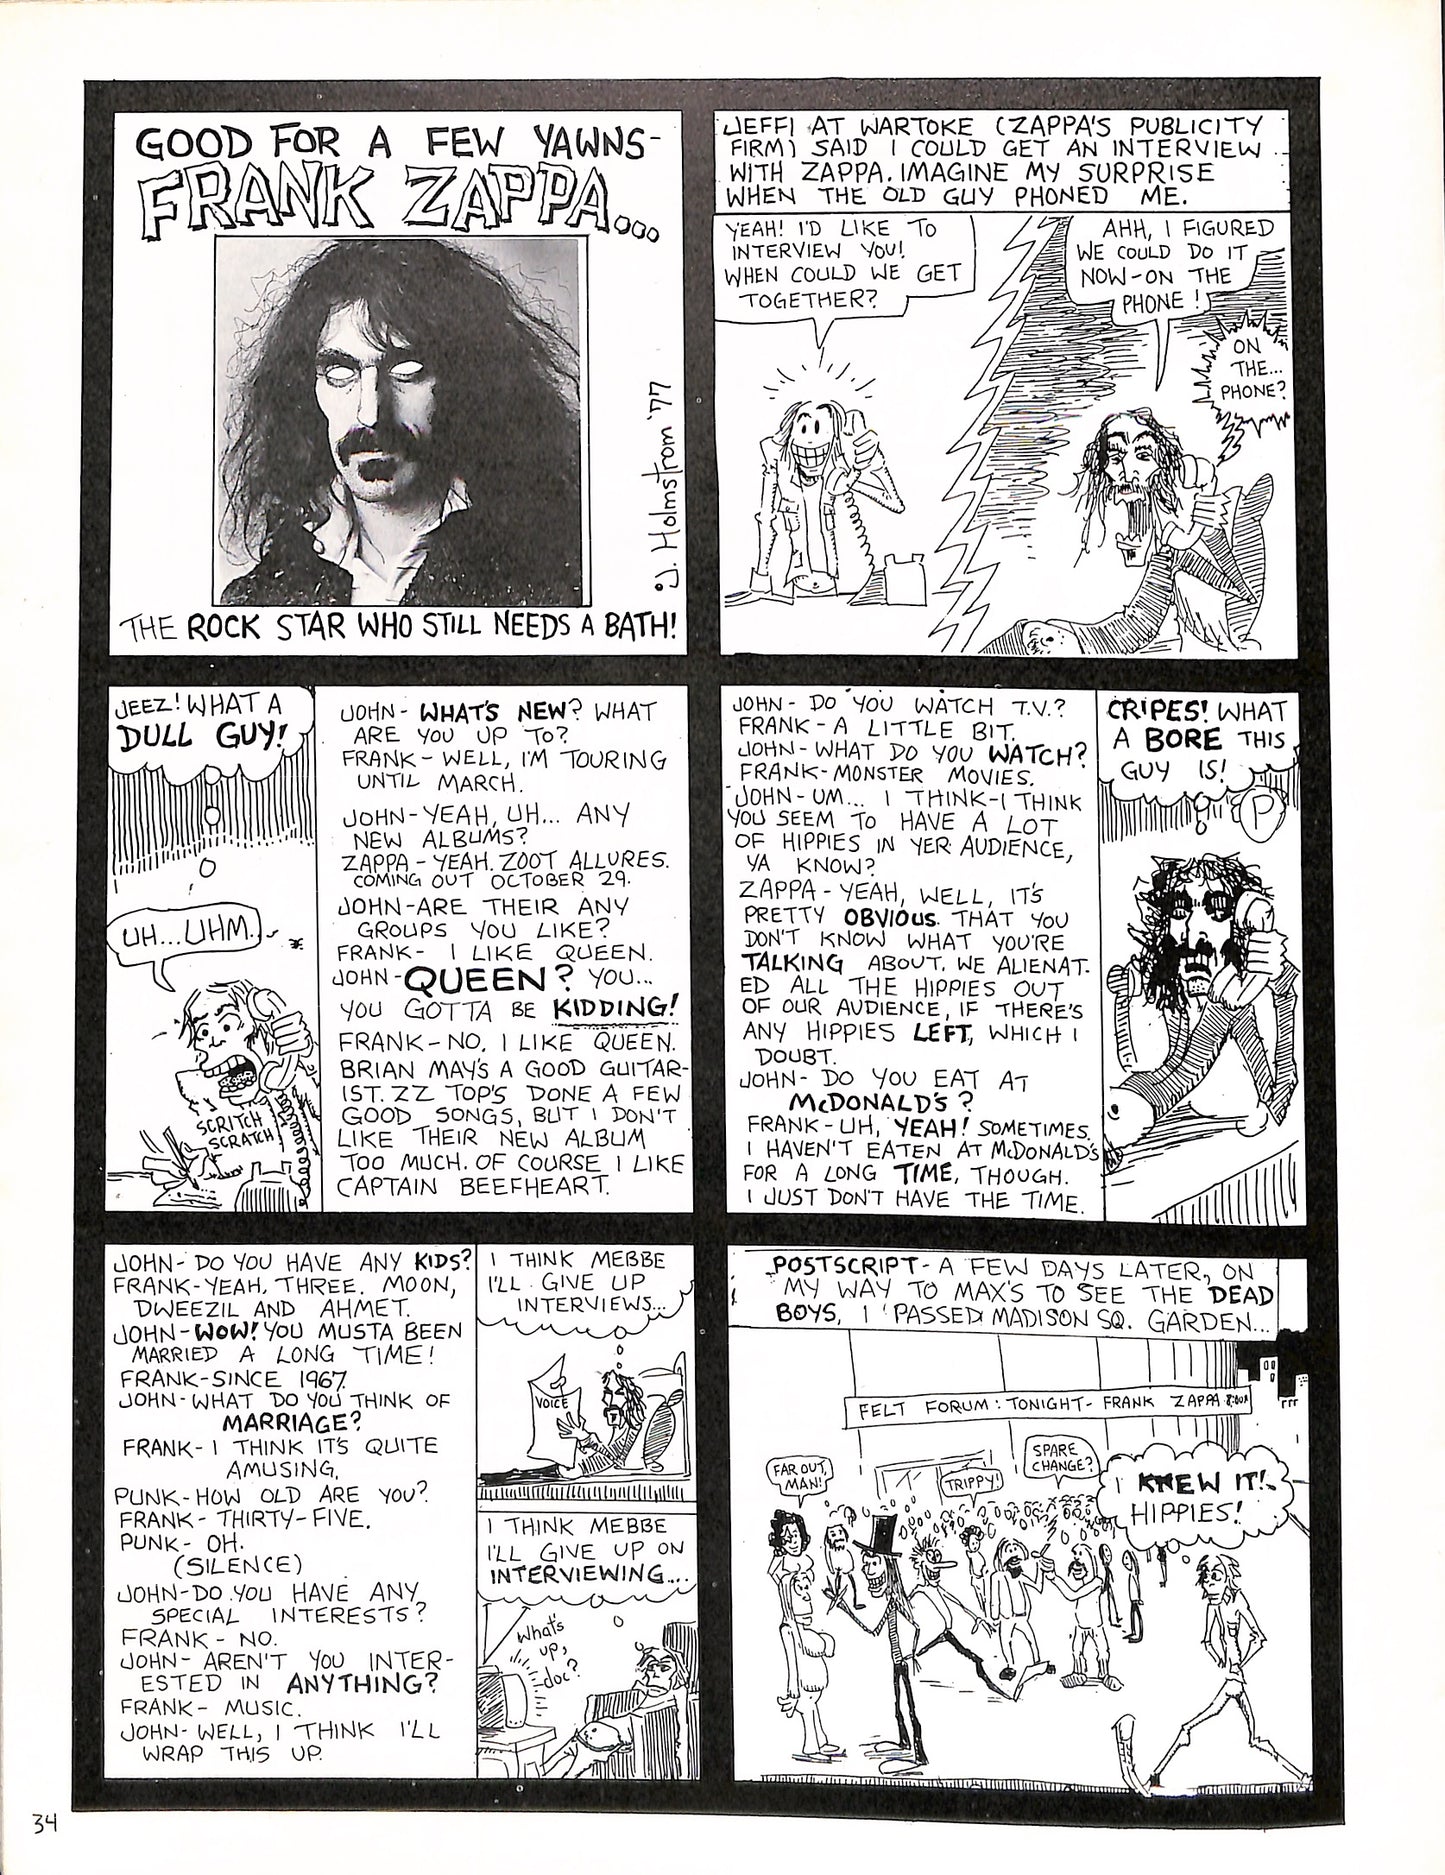 GOOD FOR A FEW YAWNS-
FRANK ZAPPA...
J. Holmstrom '77
THE ROCK STAR WHO STILL NEEDS A BATH!
JEFFI AT WARTOKE (ZAPPA'S PUBLICITY
FIRM) SAID I COULD GET AN INTERVIEW
WITH ZAPPA. IMAGINE MY SURPRISE
WHEN THE OLD GUY PHONED ME.
YEAH! I'D LIKE TO
INTERVIEW YOU!
WHEN COULD WE GET
TOGETHER?
AHH, I FIGURED
WE COULD DO IT
NOW-ON THE
PHONE!
ON
THE...
PHONE?
JEEZ! WHAT A
DULL GUY!
UH...UHM..
SCRITCH
SCRATCH
JOHN- WHAT'S NEW? WHAT
ARE YOU UP TO?
FRANK- WELL, I'M TOURING
UNTIL MARCH.
JOHN-YEAH, UH... ANY
NEW ALBUMS?
ZAPPA- YEAH. ZOOT ALLURES.
COMING OUT OCTOBER 29.
JOHN-ARE THEIR ANY
GROUPS YOU LIKE?
FRANK- I LIKE QUEEN.
JOHN-QUEEN? YOU...
YOU GOTTA BE KIDDING!
FRANK-NO, I LIKE QUEEN.
BRIAN MAY'S A GOOD GUITAR-
IST. ZZ TOP'S DONE A FEW
GOOD SONGS, BUT I DON'T
LIKE THEIR NEW ALBUM
TOO MUCH. OF COURSE I LIKE
CAPTAIN BEEFHEART.
JOHN- DO YOU WATCH T.V.?
FRANK- A LITTLE BIT.
JOHN-WHAT DO YOU WATCH?
FRANK-MONSTER MOVIES.
JOHN-UM... I THINK-I THINK
YOU SEEM TO HAVE A LOT
OF HIPPIES IN YER AUDIENCE,
YA KNOW?
ZAPPA- YEAH, WELL, IT'S
PRETTY OBVIOUS THAT YOU
DON'T KNOW WHAT YOU'RE
TALKING ABOUT. WE ALIENAT-
ED ALL THE HIPPIES OUT
OF OUR AUDIENCE, IF THERE'S
ANY HIPPIES LEFT, WHICH I
DOUBT.
JOHN- DO YOU EAT AT
McDONALD'S?
FRANK-UH, YEAH! SOMETIMES.
I HAVEN'T EATEN AT McDONALD'S
FOR A LONG TIME, THOUGH.
I JUST DON'T HAVE THE TIME.
CRIPES! WHAT
A BORE THIS
GUY IS!
P
JOHN- DO YOU HAVE ANY KIDS?
FRANK-YEAH, THREE. MOON,
DWEEZIL AND AHMET.
JOHN-WOW! YOU MUSTA BEEN
MARRIED A LONG TIME!
FRANK-SINCE 1967.
JOHN-WHAT DO YOU THINK OF
MARRIAGE?
FRANK- I THINK IT'S QUITE
AMUSING.
PUNK-HOW OLD ARE YOU?
FRANK- THIRTY-FIVE.
PUNK- OH.
(SILENCE)
JOHN-DO YOU HAVE ANY
SPECIAL INTERESTS?
FRANK- NO.
JOHN- AREN'T YOU INTER-
ESTED IN ANYTHING?
FRANK- MUSIC.
JOHN- WELL, I THINK I'LL
WRAP THIS UP.
I THINK MEBBE
I'LL GIVE UP
INTERVIEWS...
VOICE
I THINK MEBBE
I'LL GIVE UP ON
INTERVIEWING....
What's
up,
doc?
POSTSCRIPT- A FEW DAYS LATER, ON
MY WAY TO MAX'S TO SEE THE DEAD
BOYS, I PASSED MADISON SQ. GARDEN...
FELT FORUM: TONIGHT- FRANK ZAPPA 8:00
FAR OUT,
MAN!
TRIPPY!
SPARE
CHANGE?
I KNEW IT!
HIPPIES!
34